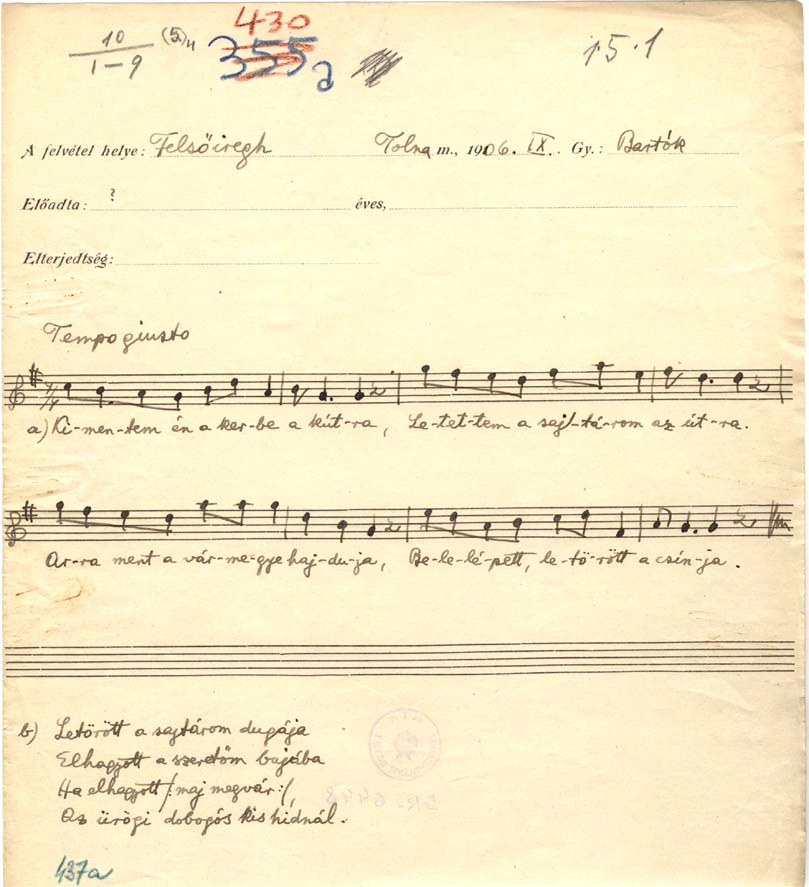 10 (5.)
1–9
430
355
a
15.1
A felvétel helye: Felsőiregh Tolna m., 1906. IX. Gy.: Bartók
Előadta: ? éves,
Elterjedtség:
Tempo giusto
7/4
a) Ki-men-tem én a ker-be a kút-ra, Le-tet-tem a saj-tá-rom az út-ra.
Ar-ra ment a vár-me-gye haj-du-ja, Be-le-lé-pett, le-tö-rött a csín-ja.
b) Letörött a sajtárom dugája
Elhagyott a szeretőm bujába
Ha elhagyott /:maj megvár:/,
Az ürögi dobogós kis hidnál.
437a